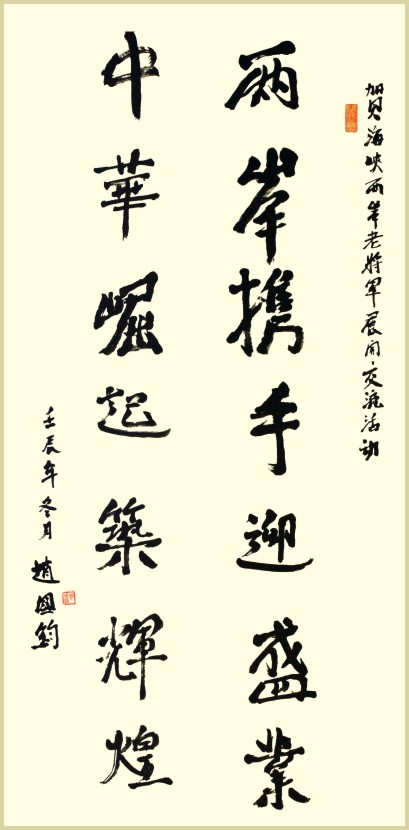 贺海峡两岸老将军展开交流活动
兩岸攜手迎盛業
中華崛起築輝煌
壬辰年冬月 趙國鈞